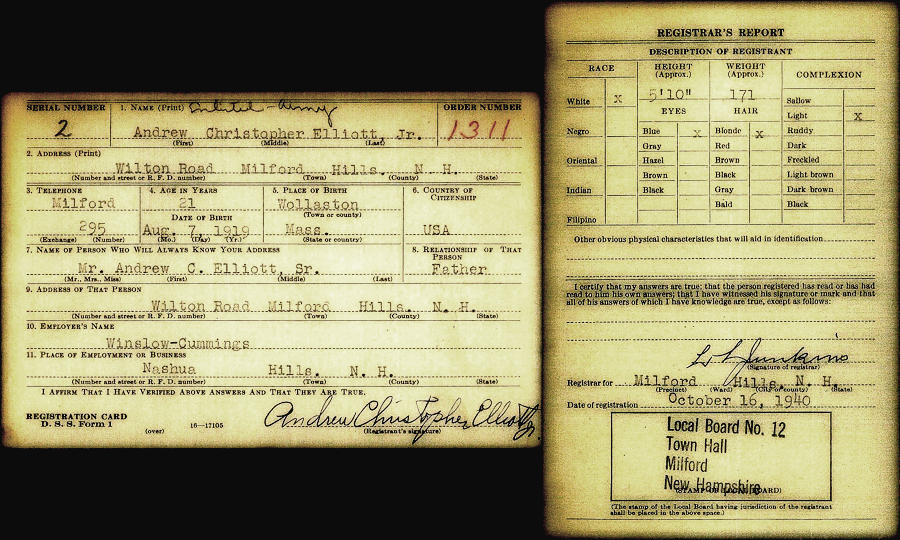 SERIAL NUMBER
1. NAME (Print) Enlisted - Army
ORDER NUMBER
2
Andrew Christopher Elliott, Jr.
1311
(First) (Middle) (Last)
2. ADDRESS (Print)
Wilton Road Milford Hills. N. H.
(Number and street or R. F. D. number) (Town) (County) (State)
3. TELEPHONE
4. AGE IN YEARS
5. PLACE OF BIRTH
6. COUNTRY OF CITIZENSHIP
Milford
21
Wollaston
(Town or county)
DATE OF BIRTH
295
Aug. 7, 1919
Mass.
USA
(Exchange) (Number)
(Mo.) (Day) (Yr.)
(State or country)
7. NAME OF PERSON WHO WILL ALWAYS KNOW YOUR ADDRESS
8. RELATIONSHIP OF THAT PERSON
Mr. Andrew C. Elliott, Sr.
Father
(Mr., Mrs., Miss) (First) (Middle) (Last)
9. ADDRESS OF THAT PERSON
Wilton Road Milford Hills. N. H.
(Number and street or R. F. D. number) (Town) (County) (State)
10. EMPLOYER'S NAME
Winslow-Cummings
11. PLACE OF EMPLOYMENT OR BUSINESS
Nashua Hills. N. H.
(Number and street or R. F. D. number) (Town) (County) (State)
I AFFIRM THAT I HAVE VERIFIED ABOVE ANSWERS AND THAT THEY ARE TRUE.
REGISTRATION CARD
D. S. S. Form 1
(over)
16—17105
Andrew Christopher Elliott Jr.
(Registrant's signature)
REGISTRAR'S REPORT
DESCRIPTION OF REGISTRANT
RACE
HEIGHT (Approx.)
WEIGHT (Approx.)
COMPLEXION
White x
5'10"
171
Sallow
EYES
HAIR
Light x
Negro
Blue x
Blonde x
Ruddy
Gray
Red
Dark
Oriental
Hazel
Brown
Freckled
Brown
Black
Light brown
Indian
Black
Gray
Dark brown
Bald
Black
Filipino
Other obvious physical characteristics that will aid in identification
I certify that my answers are true; that the person registered has read or has had
read to him his own answers; that I have witnessed his signature or mark and that
all of his answers of which I have knowledge are true, except as follows:
(Signature of registrar)
Registrar for Milford Hills. N. H.
(Precinct) (Ward) (City or county) (State)
Date of registration October 16, 1940
Local Board No. 12
Town Hall
Milford
New Hampshire
(STAMP OF LOCAL BOARD)
(The stamp of the Local Board having jurisdiction of the registrant
shall be placed in the above space.)